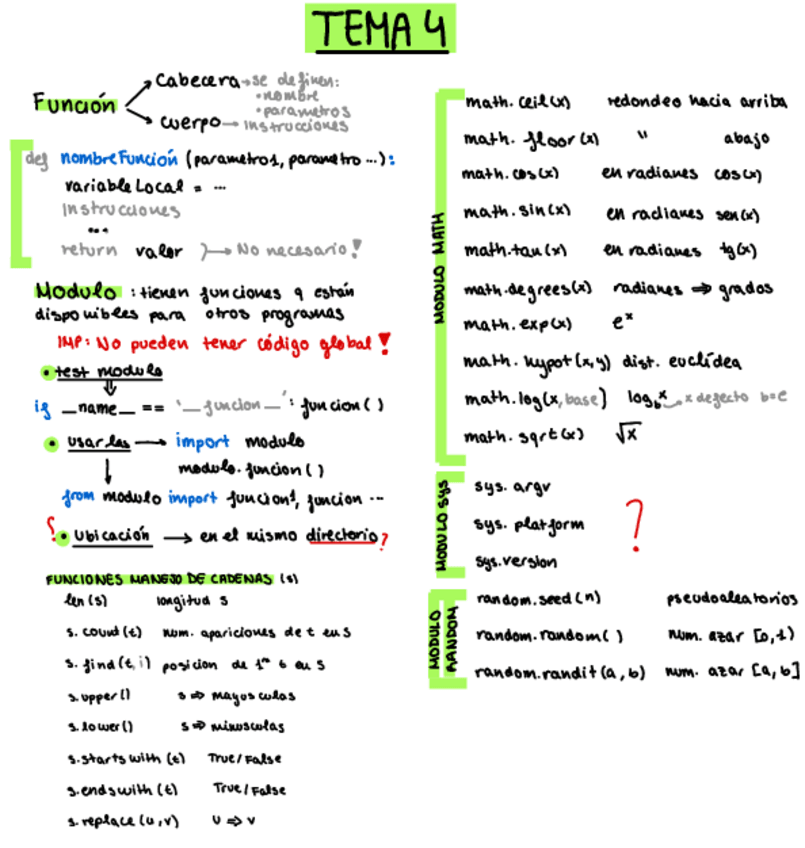 TEMA 4
Función
Cabecera → se definen:
• nombre
• parametros
cuerpo → Instrucciones
def nombreFunción (parametros1, parametro ...):
variableLocal = ...
Instrucciones
...
return valor → No necesario!
Modulo : tienen funciones q están
disponibles para otros programas
IMP: No pueden tener código global!
• test modulo
⇓
if __name__ == '__funcion__': funcion()
• usarlas → import modulo
modulo.funcion()
↓
from modulo import funcion1, funcion ...
¿ • Ubicación → en el mismo directorio?
FUNCIONES MANEJO DE CADENAS (s)
len(s) longitud s
s.count(t) num. apariciones de t en s
s.find(t,i) posicion de 1ª t en s
s.upper() s ⇒ mayusculas
s.lower() s ⇒ minusculas
s.startswith(t) True/False
s.endswith(t) True/False
s.replace(u,v) u ⇒ v
MODULO MATH
math.ceil(x) redondeo hacia arriba
math.floor(x) " abajo
math.cos(x) en radianes cos(x)
math.sin(x) en radianes sen(x)
math.tan(x) en radianes tg(x)
math.degrees(x) radianes ⇒ grados
math.exp(x) eˣ
math.hypot(x,y) dist. euclídea
math.log(x,base) log_b x → x defecto b=e
math.sqrt(x) √x
MODULO SYS
sys.argv
sys.platform
sys.version
?
MODULO RANDOM
random.seed(n) pseudoaleatorios
random.random() num. azar [0,1)
random.randit(a,b) num. azar [a,b]